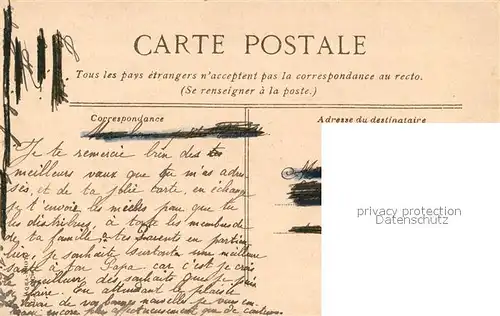 CARTE POSTALE
Tous les pays étrangers n'acceptent pas la correspondance au recto.
(Se renseigner à la poste.)
Correspondance
Adresse du destinataire
Je te remercie bien des tes
meilleurs vœux que tu m'as adres
sés, et de ta jolie carte, en échange
je t'envoie les miens pour que tu
les distribues à toute les membres de
de ta famille, à tes parents en particu
lier, je souhaite surtout une meilleure
santé à ton Papa. car c'est je crois
le meilleur des souhaits que je puis
faire. En attendant le plaisir
d'avoir de vos bonnes nouvelles je vous em-
brasse encore plus affectueusement que de coutume
privacy protection
Datenschutz